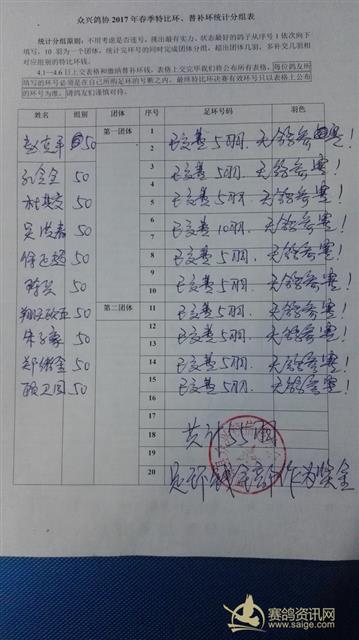 众兴鸽协 2017 年春季特比环、普补环统计分组表
统计分组原则：不用考虑是否连号，挑出最有实力、状态最好的鸽子从序号 1 依次向下
填写，10 羽为一个团体，统计完环号的同时完成团体分组，超出团体几羽，多补交几羽相
对应组别的特比环钱。
4.1—4.6 日上交表格和缴纳普补环钱。表格上交完毕我们将公布所有表格。每位鸽友所
填写的环号必须是在自己所购足环的号断之内。最终特比环决赛有效环号只以表格上公布
的环号为准。请鸽友们谨慎对待。
姓名 组别 团体 序号 足环号码 羽色
第一团体 1
50 2 已交费 5羽. 无鸽参赛!
3
孔令全 50 4 已交费 5羽. 无鸽参赛!
50 5 已交费 5羽. 无鸽参赛!
6
50 7 已交费 10羽. 无鸽参赛!
50 8 已交费 5羽. 无鸽参赛!
9
50 10 已交费 5羽. 无鸽参赛!
50 第二团体 11 已交费 5羽. 无鸽参赛!
12
50 13 已交费 5羽. 无鸽参赛!
50 14 已交费 5羽. 无鸽参赛!
顾卫国 50 15 已交费 5羽. 无鸽参赛!
16
17
18 共计55羽
19
20 足环钱全部作为奖金
赛鸽资讯网
www.saige.com